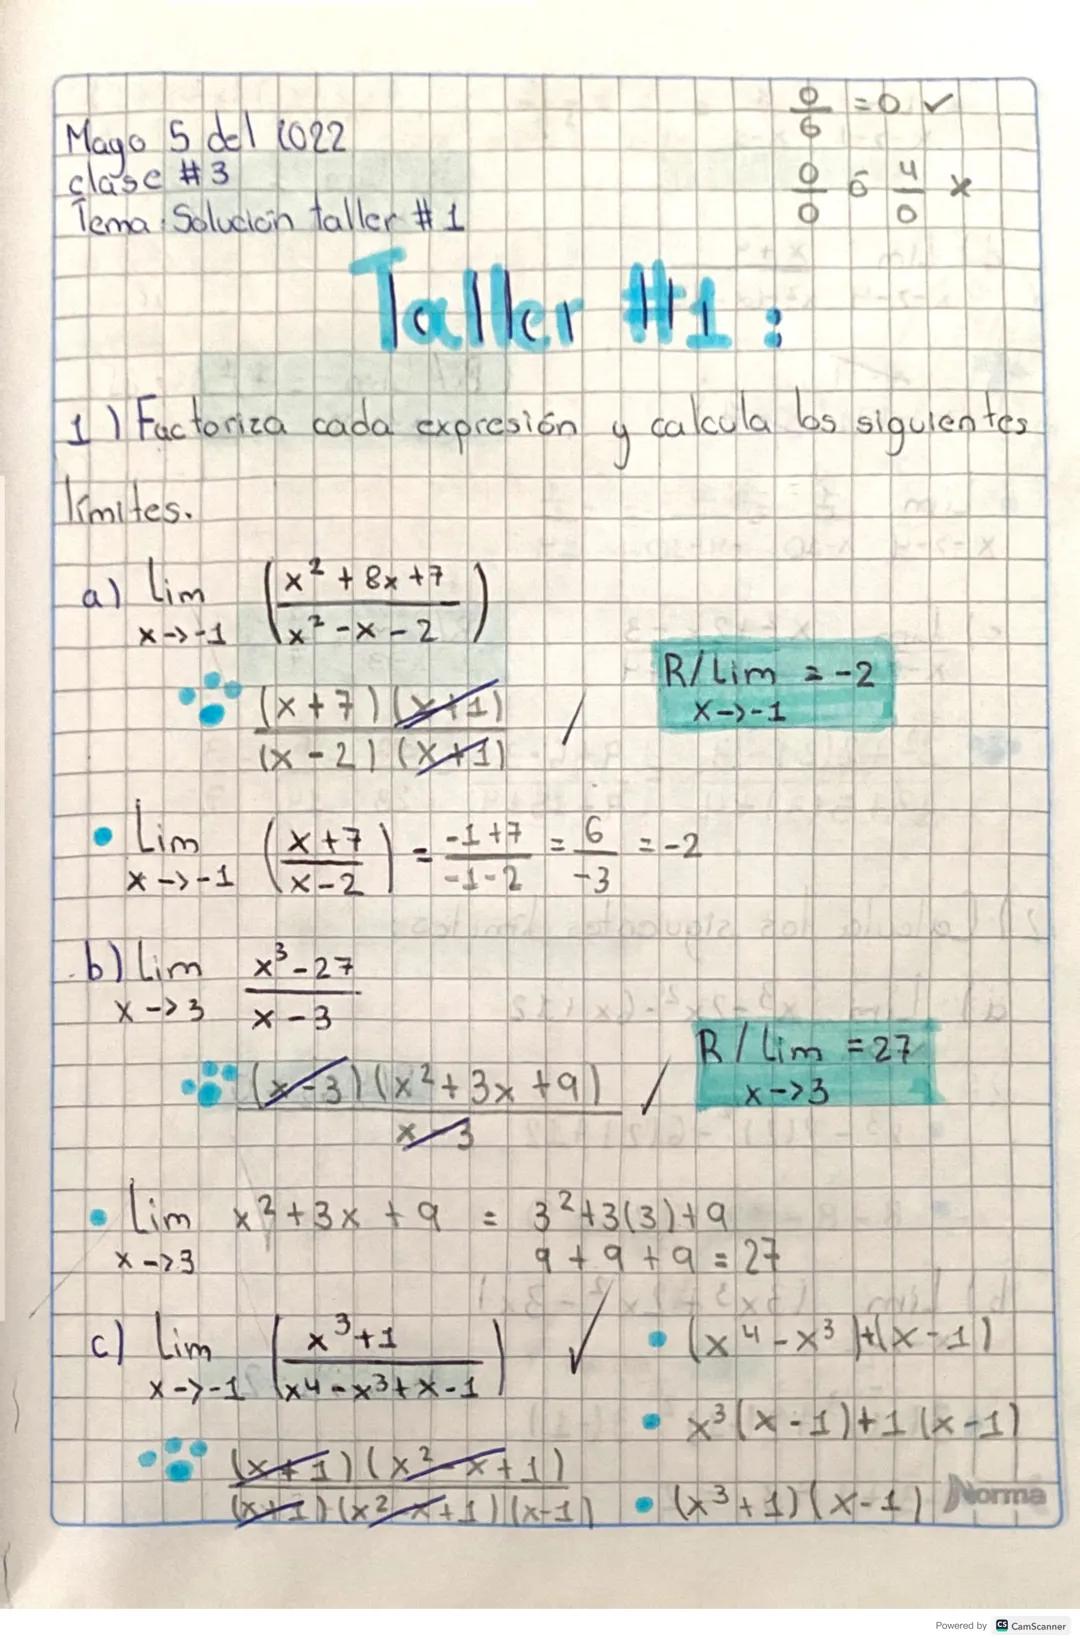 Mayo 5 del 2022
clase #3
Tema: Solución taller #1
0/6 = 0 ✓
0/0 ó 4/0 x
Taller #1:
1) Factoriza cada expresión y calcula los siguientes
límites.
a) Lim x->-1 ( (x² + 8x + 7) / (x² - x - 2) )
(x + 7)(x+1) / (x - 2)(x+1)
R/ Lim x->-1 = -2
• Lim x->-1 ( (x+7) / (x-2) ) = (-1+7) / (-1-2) = 6/-3 = -2
b) Lim x->3 (x³ - 27) / (x - 3)
(x-3)(x²+3x+9) / x-3
R/ Lim x->3 = 27
• Lim x->3 x²+3x+9 = 3²+3(3)+9
9+9+9 = 27
c) Lim x->-1 ( (x³+1) / (x4-x³+x-1) ) ✓
(x+1)(x²-x+1) / (x+1)(x²-x+1)(x-1)
• (x4-x³)+(x-1)
• x³(x-1)+1(x-1)
• (x³+1)(x-1)
Norma
Powered by CS CamScanner